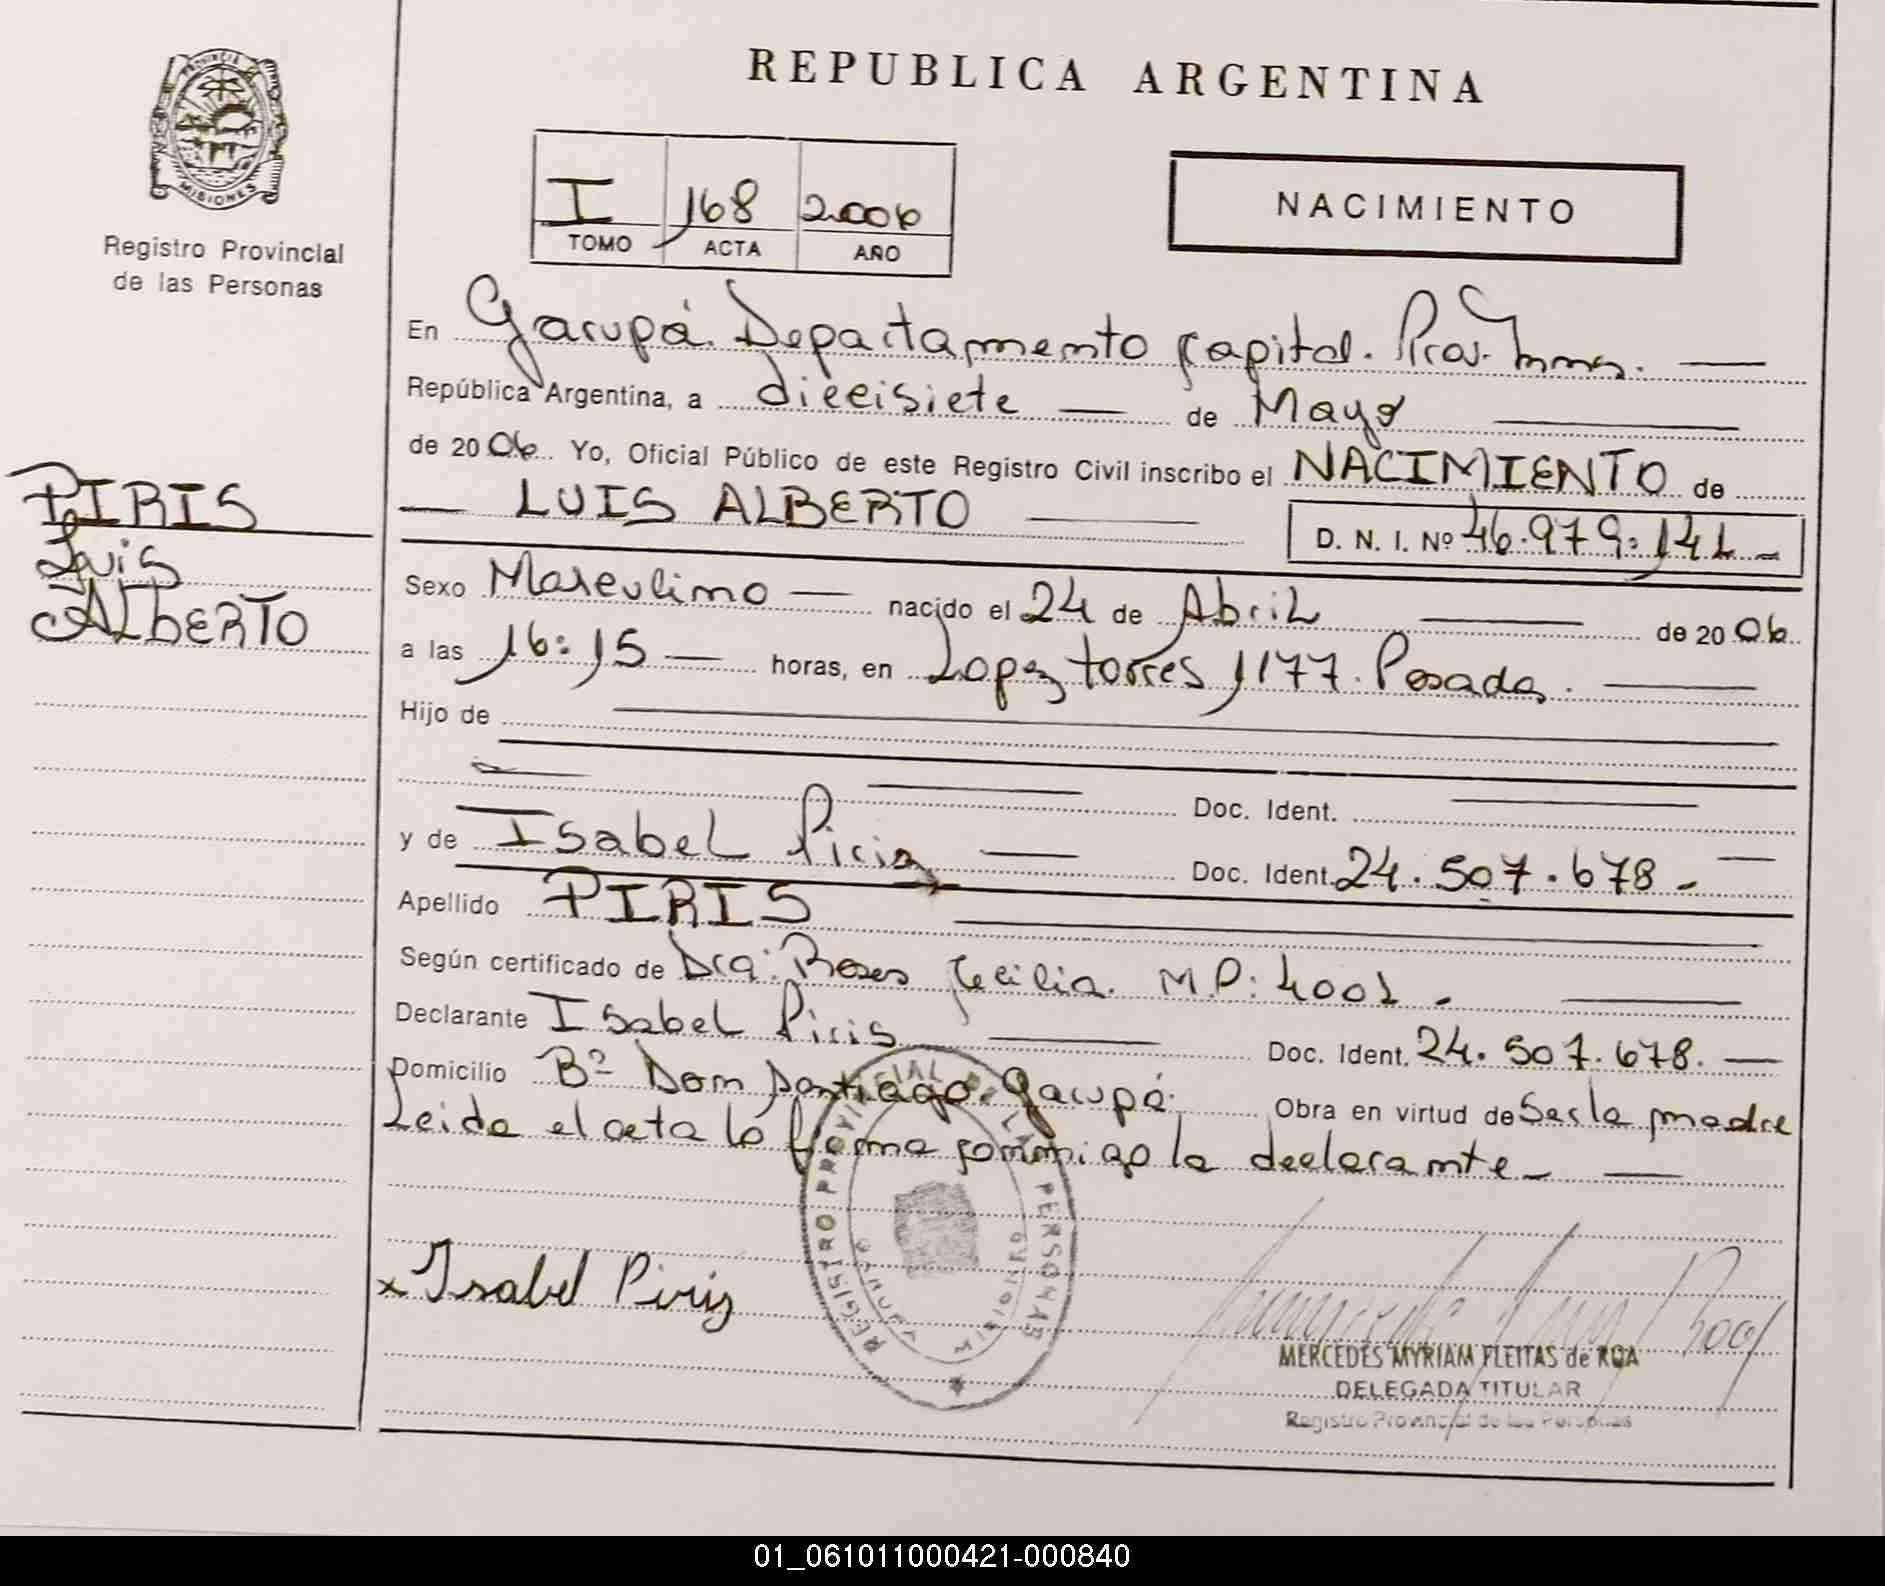 REPUBLICA ARGENTINA
PROVINCIA
MISIONES
Registro Provincial
de las Personas
I 168 2006
TOMO ACTA AÑO
NACIMIENTO
En Garupá. Departamento Capital. Prov. Mnes.
República Argentina, a diecisiete de Mayo
de 2006 Yo, Oficial Público de este Registro Civil inscribo el NACIMIENTO de
LUIS ALBERTO
D. N. I. Nº 46.979.141
PIRIS
Luis
ALBERTO
Sexo Masculino nacido el 24 de Abril de 2006
a las 16:15 horas, en Lopez torres 1177. Posadas.
Hijo de
Doc. Ident.
y de Isabel Piris Doc. Ident. 24.507.678.
Apellido PIRIS
Según certificado de Dra: Cecilia. M.P: 4001.
Declarante Isabel Piris Doc. Ident. 24.507.678.
Domicilio Bº Don Santiago. Garupá. Obra en virtud de Ser la madre
Leida el acta la firma conmigo la declarante
REGISTRO PROVINCIAL DE LAS PERSONAS
MISIONES
x Isabel Piris
MERCEDES MYRIAM FLEITAS de ROA
DELEGADA TITULAR
Registro Provincial de las Personas
01_061011000421-000840